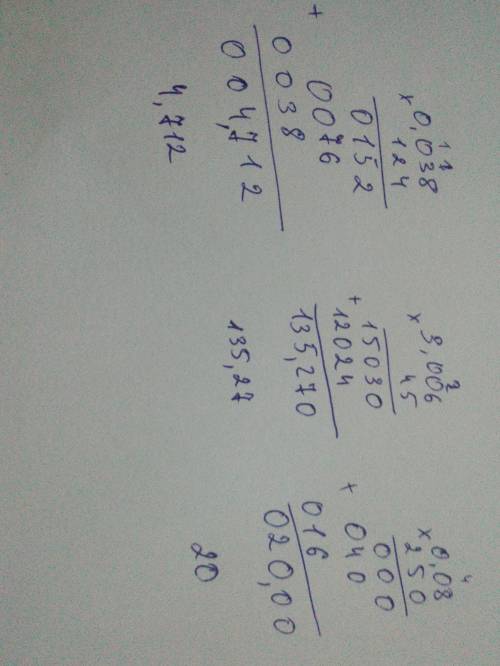 1 1
× 0,038
124
0152
+
0076
0038
004,712
4,712
2
× 3,006
45
15030
+
12024
135,270
135,27
4
× 0,08
250
000
+
040
016
020,00
20